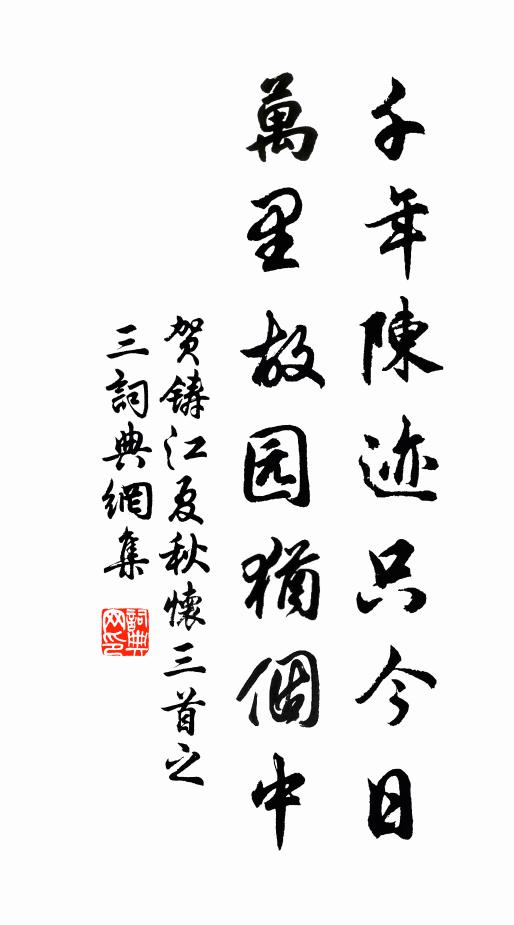 千年陳迹只今日
萬里故园猶個中
贺鑄江夏秋懷三首之
三詞典網集
詞典网印